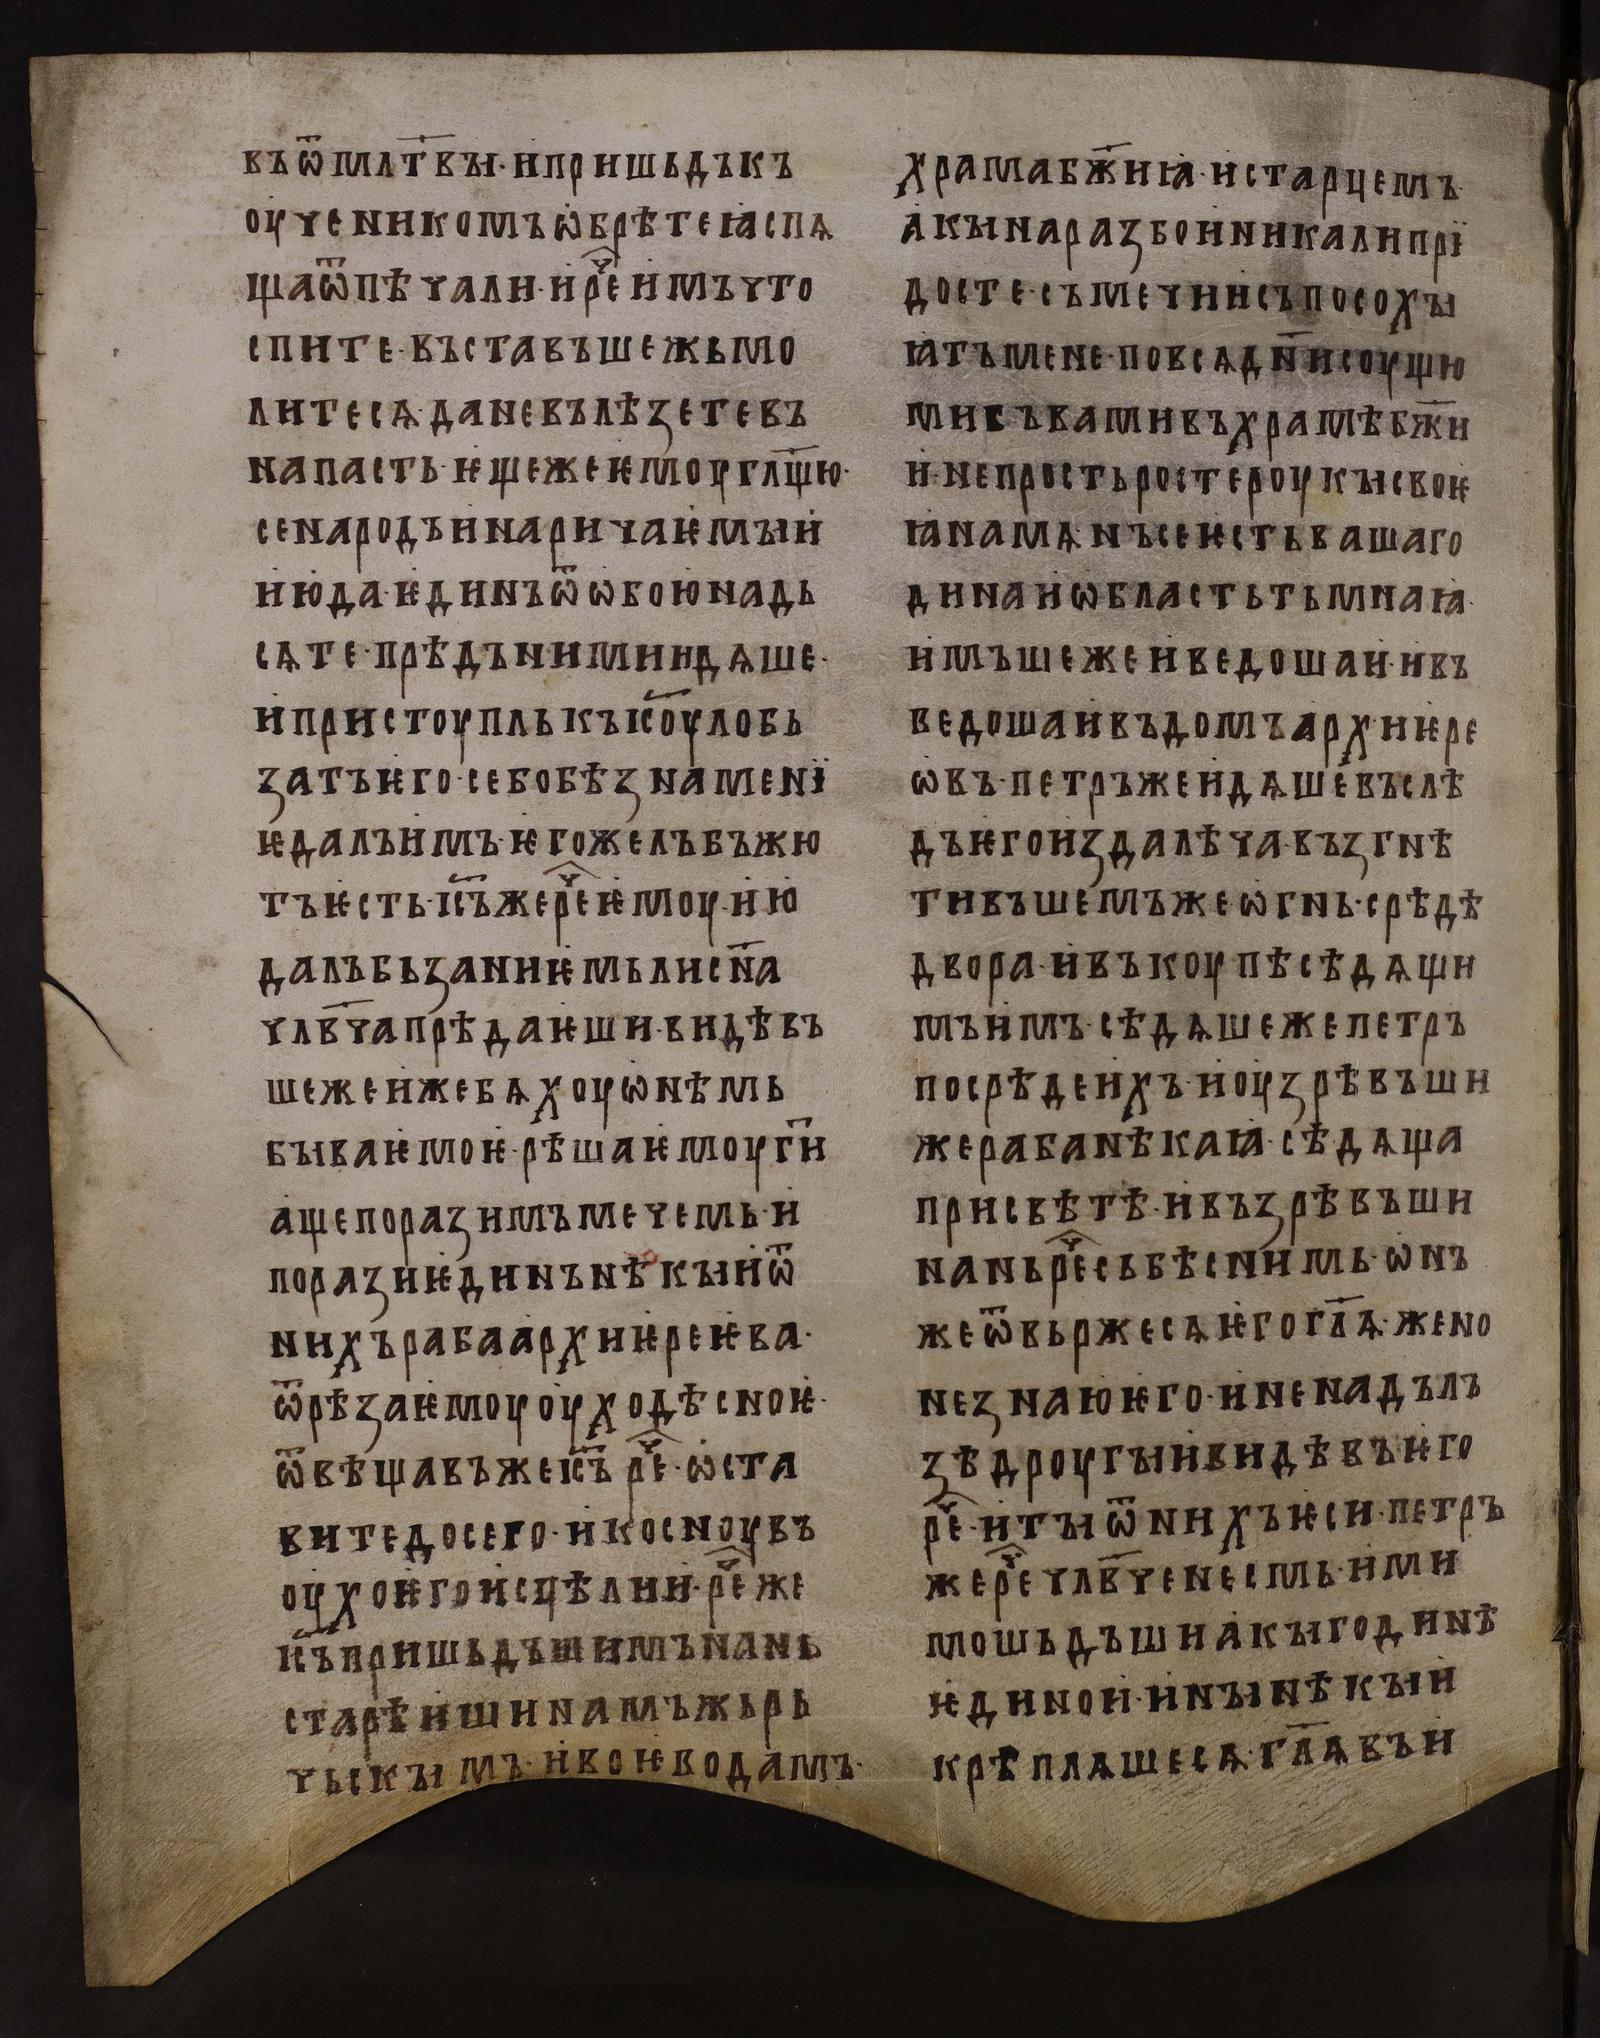 въѿмлт҃вꙑ·ипришьдък ъ
оученикомъѡбрѣтеꙗспѧ
щаѿпѣчали·ирⷱ҇еимъчто
спите·въставъшежьмо
литесѧ·даневълѣзетевъ
напасть·ѥщежеѥмоугл҃щю·
сенародъинаричаѥмꙑи
июда·ѥдинъѿѡбоюнадь
сѧте·прѣдънимиидѧше·
ипристоупльк ъіс҃оулобь
затъѥго·себобѣзнаменї
ѥдалъимъ·ѥгожелъбъжю
тъѥсть·іс҃ъжерⷱ҇еѥмоу·ию
далъбьзаниѥмьлисн҃а
члв҃чапрѣдаѥши·видѣвъ
шежеижебѧхоуѡнѣмь
бꙑваѥмоѥ·рѣшаѥмоуги҃
ащепоразимъмечемь·и
поразиѥдинънѣкꙑиѿ
нихърабаархиѥреѥва·
ѿрѣзаѥмоуоуходѣсноѥ·
ѿвѣщавъжеіс҃ърⷱ҇е·ѡста
витедосего·икосноувъ
оухоѥгоисцѣлии·рⷱ҇еже
іс҃ъпришьдъшимънань
старѣишинамъжьрь
чьскꙑмъ·ивоѥводамъ·
храмабж҃иꙗ·истарцемъ·
акꙑнаразбоиникалиприї
досте·съмечиисъпосохꙑ
ꙗтъмене·повсѧдн҃исоущю
мисъвамивъхрамѣбж҃и
и·непростьростероукꙑсвоѥ
ꙗнамѧнъсеѥстьвашаго
динаиѡбластьтьмнаꙗ·
имъшежеиведошаи·ивъ
ведошаивъдомъархиѥре
ѡвъ·петръжеидѧшевъслѣ
дъѥгоиздалѣча·възгнѣ
тивъшемъжеѡгнь·срѣдѣ
двора·ивъкоупѣсѣдѧщи
мъимъ·сѣдѧшежепетръ
посрѣдеихъ·иоузрѣвъши
жерабанѣкаꙗ·сѣдѧща
присвѣтѣ·ивъзрѣвъши
наньрⷱ҇есьбѣснимь·ѡнъ
жеѿвьржесѧѥгогл҃ѧ·жено
незнаюѥго·иненадълъ
зѣдроугꙑивидѣвъѥго
рⷱ҇е·итꙑѿнихъѥси·петръ
жерⷱ҇ечлв҃ченеесмь·ими
мошьдъшиакꙑгодинѣ
ѥдинои·инꙑнѣкꙑи
крѣплѧшесѧ·гл҃ѧвъи